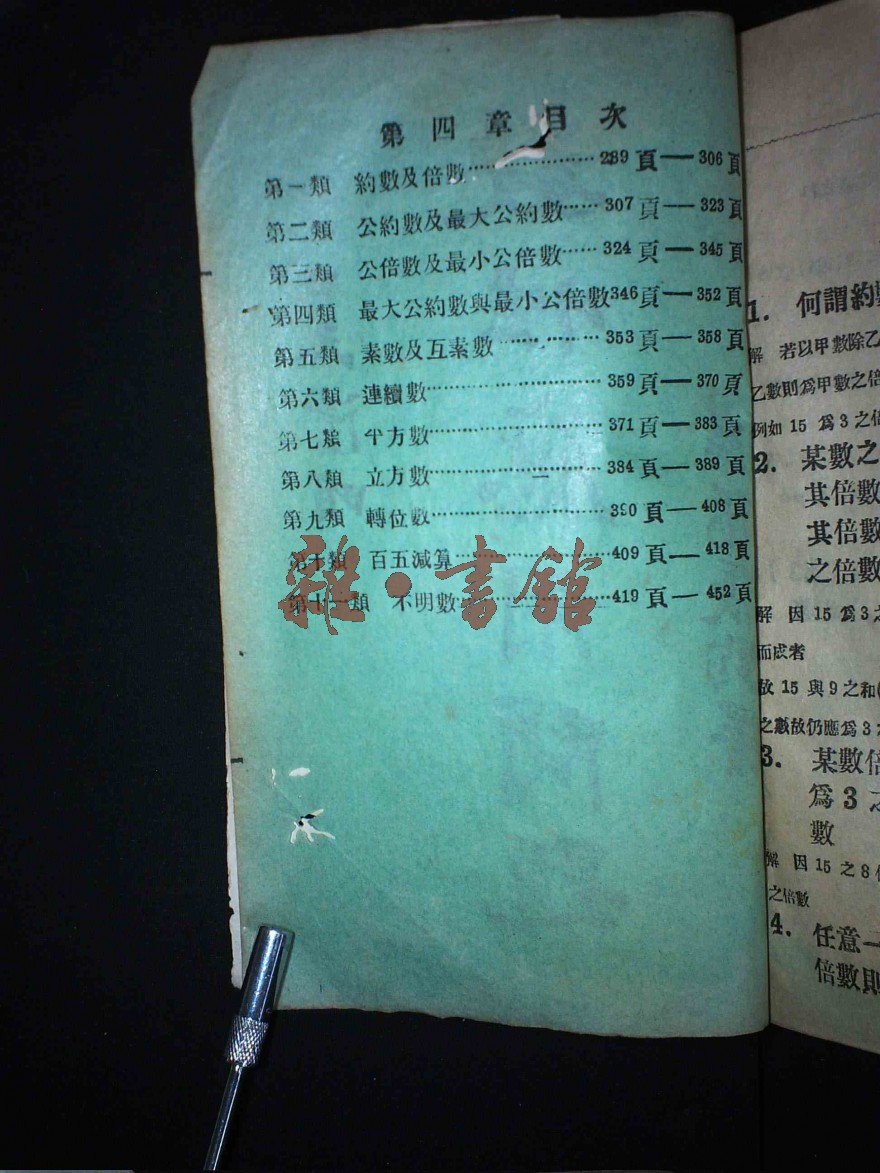 第四章目次
第一類 約數及倍數……………289頁—306頁
第二類 公約數及最大公約數……307頁—323頁
第三類 公倍數及最小公倍數……324頁—345頁
第四類 最大公約數與最小公倍數346頁—352頁
第五類 素數及互素數……………353頁—358頁
第六類 連續數……………………359頁—370頁
第七類 平方數……………………371頁—383頁
第八類 立方數……………………384頁—389頁
第九類 轉位數……………………390頁—408頁
第十類 百五減算…………………409頁—418頁
第十一類 不明數…………………419頁—452頁
雜·書館
1. 何謂約
解 若以甲數除乙
乙數則爲甲數之倍
例如 15 爲 3 之倍
2. 某數之
其倍數
其倍數
之倍數
解 因 15 爲 3 之
而成者
故 15 與 9 之和
之數故仍應爲 3
3. 某數倍
爲 3 之
數
解 因 15 之 8
之倍數
4. 任意一
倍數則